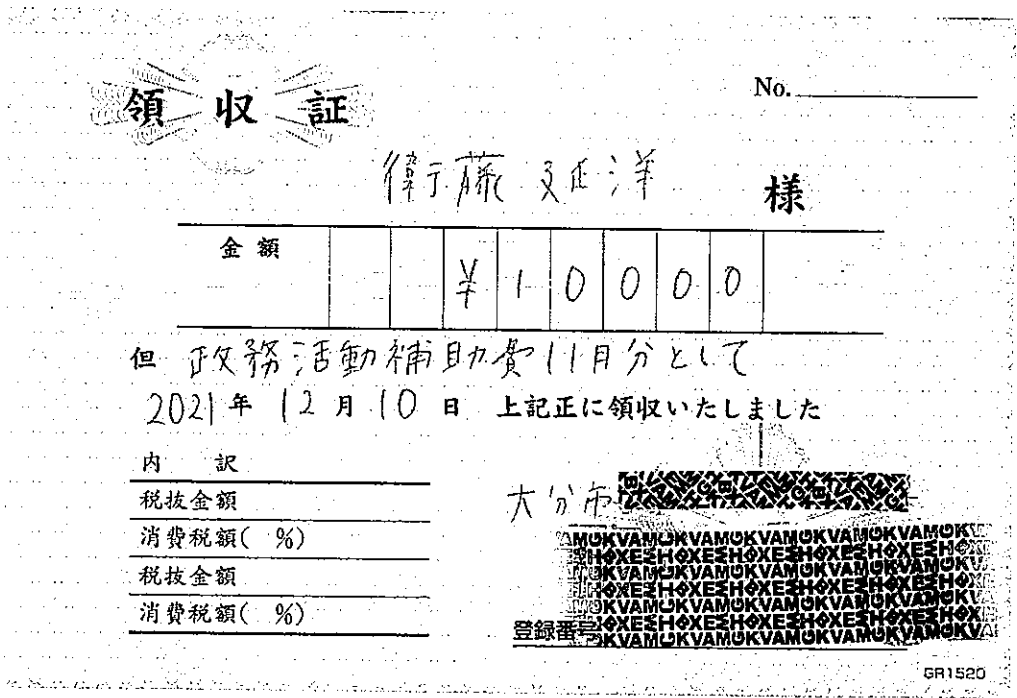 領収証
No.
衛藤延洋 様
金額 ¥10000
但 政務活動補助費11月分として
2021年12月10日 上記正に領収いたしました
内訳
税抜金額
消費税額( %)
税抜金額
消費税額( %)
大分市
登録番号
GR1520